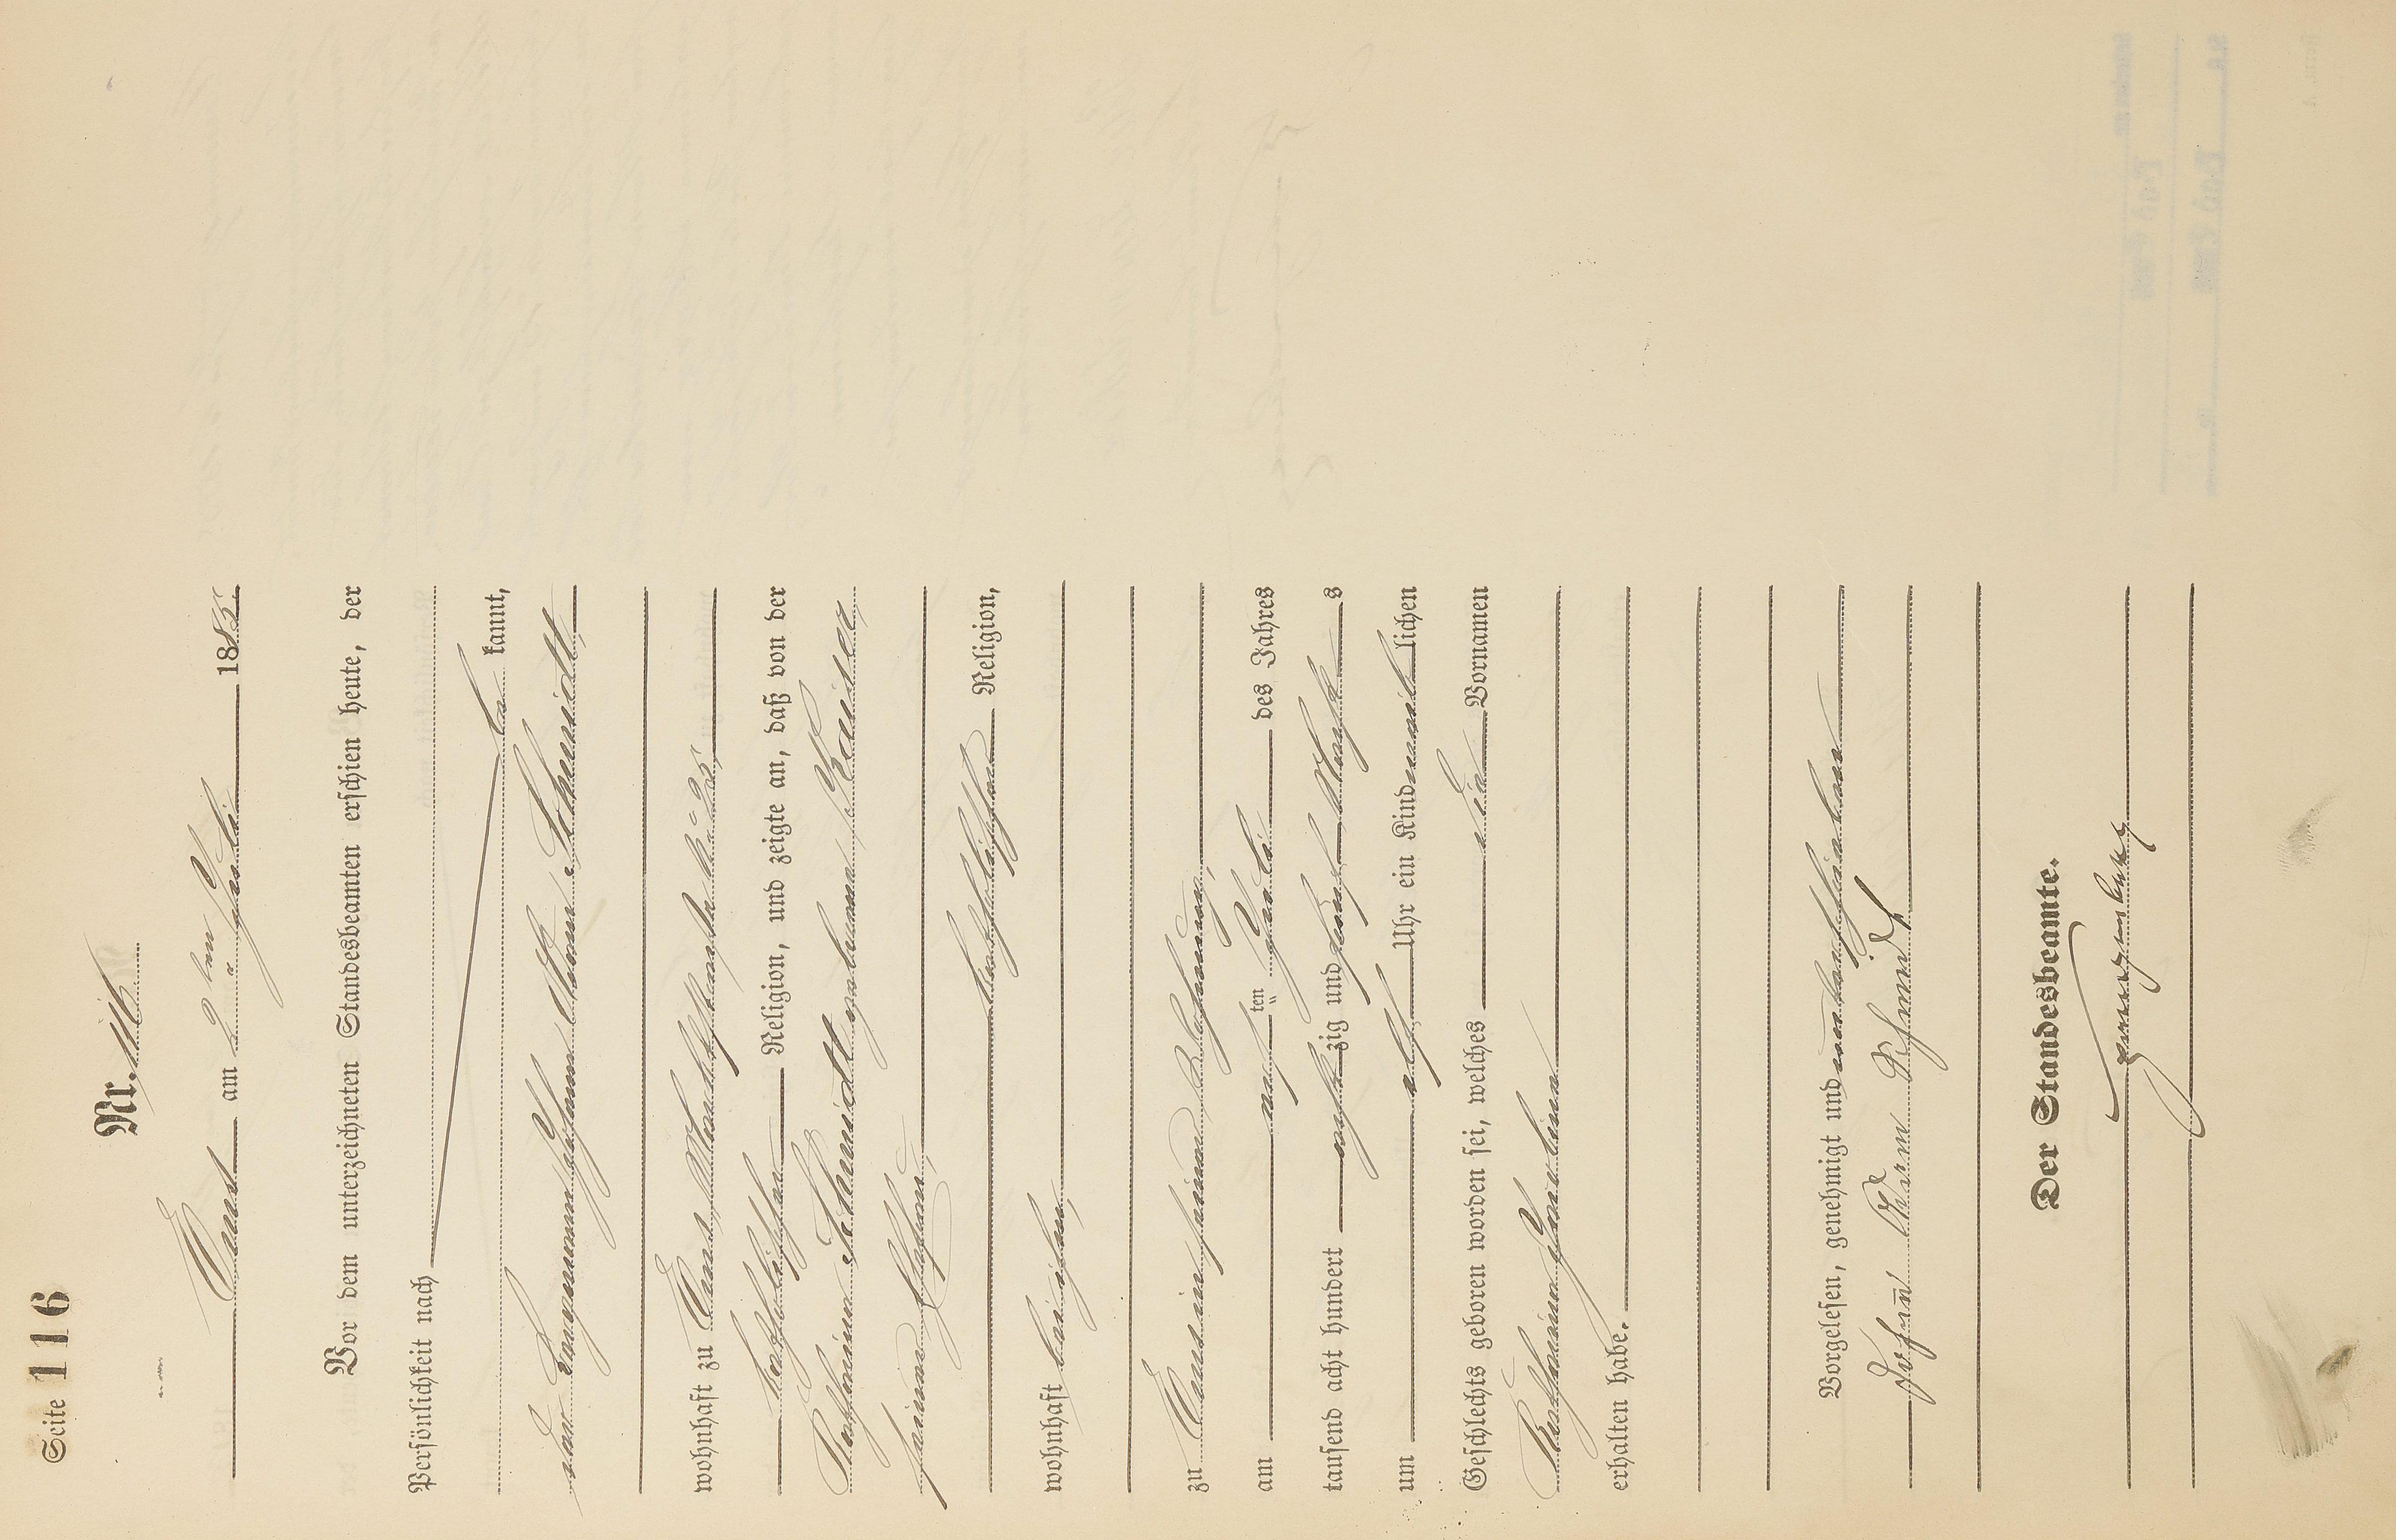 Seite 116
Nr. 116.
Ems am 9ten Juli 1885.
Vor dem unterzeichneten Standesbeamten erschien heute, der
Persönlichkeit nach
be kannt,
der Bergmann Johann Adam Schmidt,
wohnhaft zu Ems,
katholischer Religion, und zeigte an, daß von der
Katharina Schmidt geborenen Kaiser,
seiner Ehefrau,
katholischer Religion,
wohnhaft bei ihm,
zu Ems in seiner Wohnung,
am ten Juli des Jahres
tausend acht hundert acht zig und fünf s
um Uhr ein Kind weiblichen
Geschlechts geboren worden sei, welches die Vornamen
Katharina
erhalten habe.
Vorgelesen, genehmigt und unterschrieben
Johann Adam Schmidt
Der Standesbeamte.